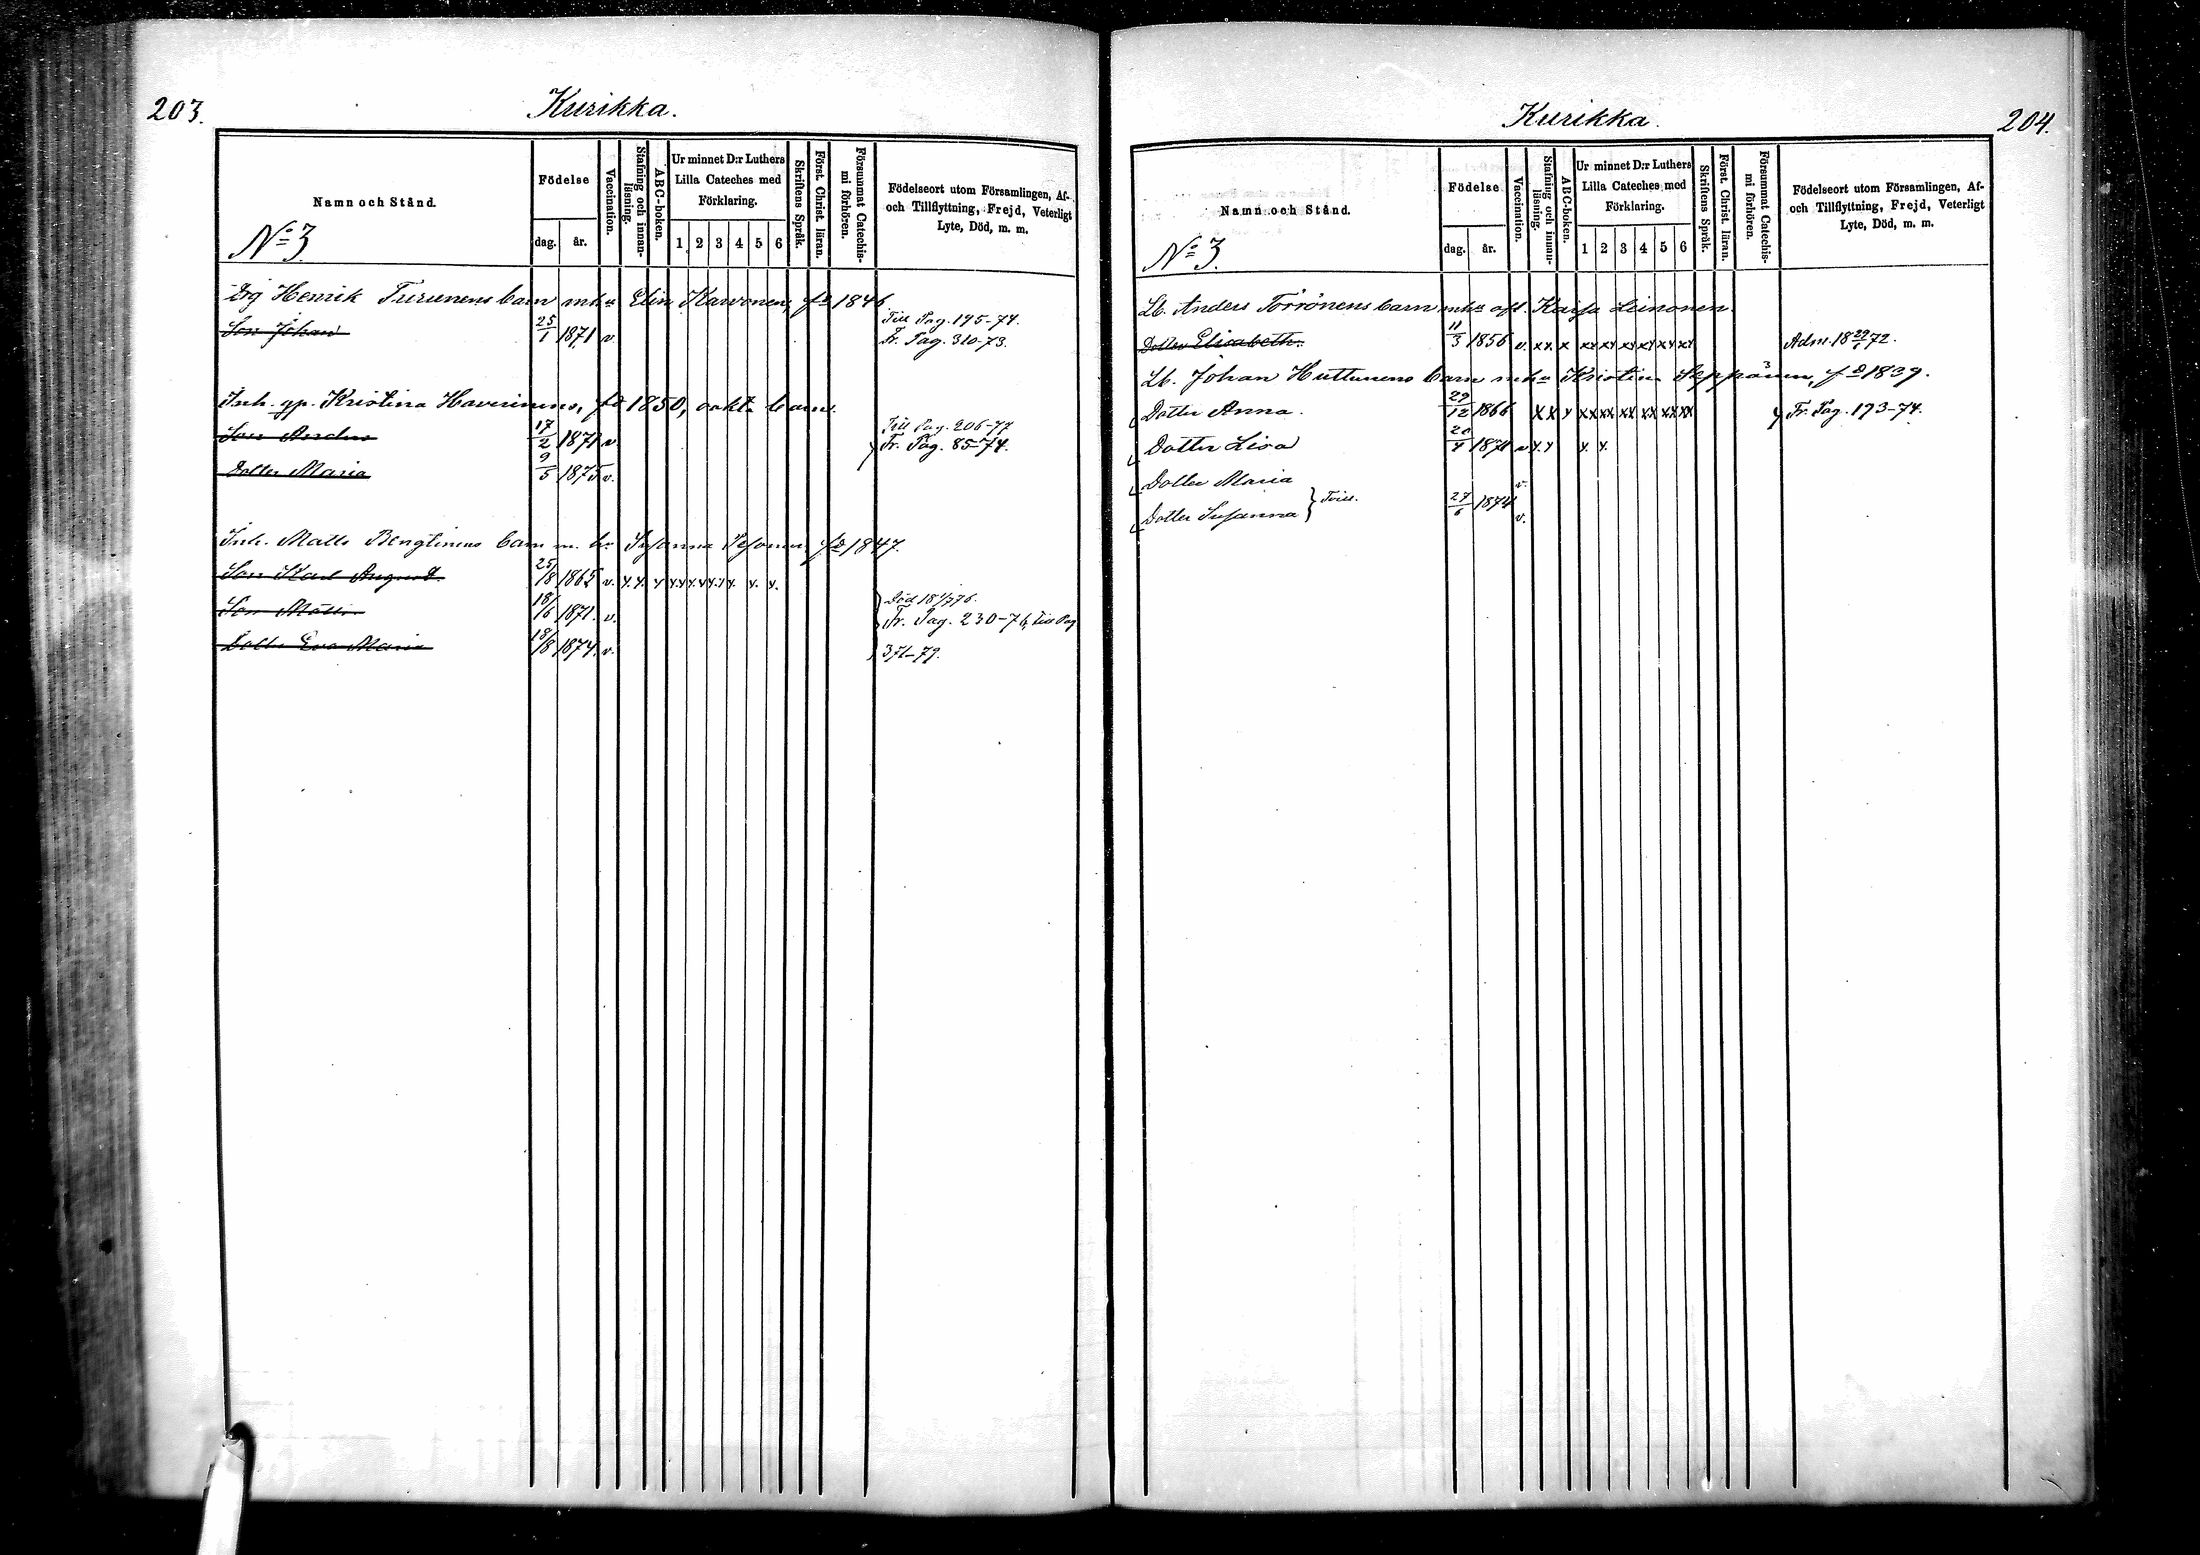 203.
Kurikka.
Namn och Stånd.
No 3.
Födelse
dag.
år.
Vaccination.
Stafning och innan-
läsning.
ABC-boken.
Ur minnet D:r Luthers
Lilla Cateches med
Förklaring.
1 2 3 4 5 6
Skriftens Språk.
Först. Christ. läran.
Försummat Catechis-
mi förhören.
Födelseort utom Församlingen, Af-
och Tillflyttning, Frejd, Veterligt
Lyte, Död, m. m.
Henrik Turunens barn m h:u Elin Karvonen, fd 1846
Son Johan 25/1 1871 v. Till Pag. 195-74.
Fr. Pag. 320-73.
Inh. gp. Kristina Haverinens, fd 1850, oäkta barn.
Son Anders 17/2 1871 v. Till Pag. 206-77
Fr. Pag. 85-74.
Dotter Maria 9/5 1875 v.
Inh. Matts Bengtinens barn m. h:u Susanna Pesonen fd 1847.
Son Karl August 25/8 1865 v. x x x x x x x x x x x.
Son Matts 18/6 1871. v. Död 18 76.
Fr. Pag. 230-76, Till Pag
Dotter Eva Maria 18/8 1874. v. 371-79.
Kurikka.
204.
Namn och Stånd.
No 3.
Födelse
dag. år.
Vaccination.
Stafning och innan-
läsning.
ABC-boken.
Ur minnet D:r Luthers
Lilla Cateches med
Förklaring.
1 2 3 4 5 6
Skriftens Språk.
Först. Christ. läran.
Försummat Catechis-
mi förhören.
Födelseort utom Församlingen, Af-
och Tillflyttning, Frejd, Veterligt
Lyte, Död, m. m.
Lb. Anders Törrönens barn m h:u afl. Kaisa Leinonen.
Dotter Elisabeth. 11/3 1856 v. xx x xx xx xx xx xx xx Adm. 18 72.
Lb. Johan Huttunens barn m h:u Kristina Seppänen, fd 1839.
Dotter Anna. 29/12 1866 xx x xx xx xx xx xx xx Fr. Pag. 193-74.
Dotter Lisa 1871 v x x x x
Dotter Maria v.
Dotter Susanna } Tvill. 27/6 1874 v.